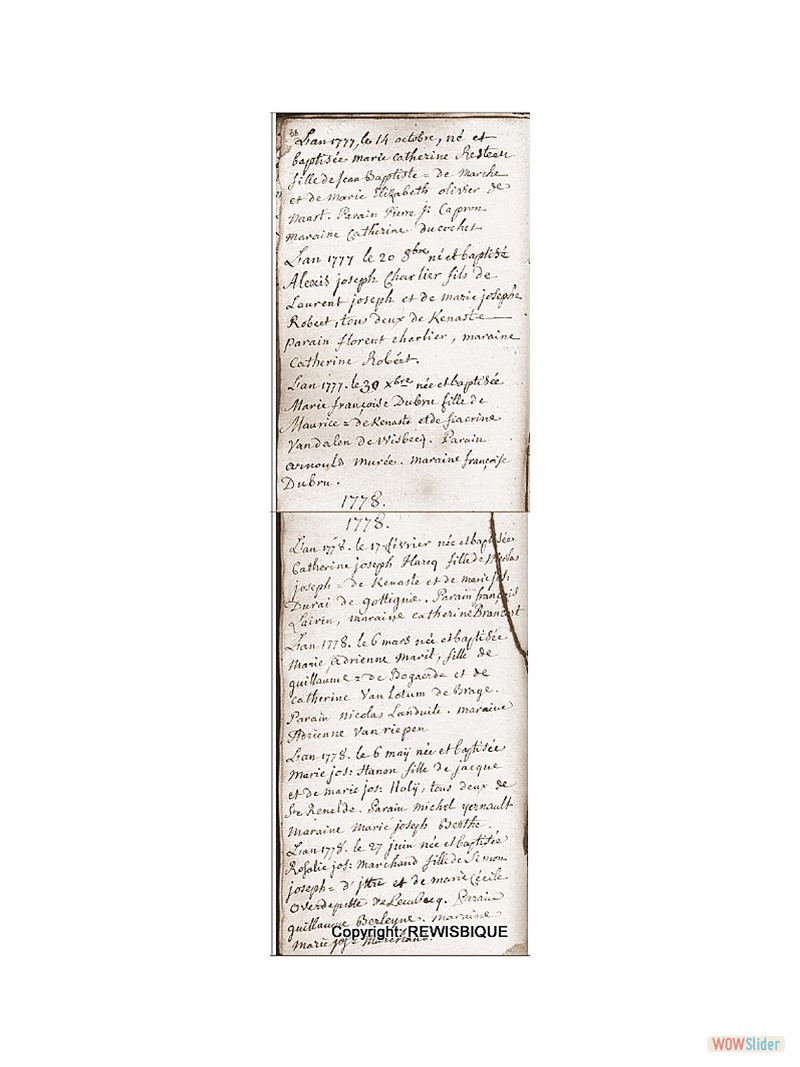 38
L'an 1777, le 14 octobre, né et
baptisée marie catherine Resteau
fille de Jean Baptiste = de Marche
et de marie Elizabeth olivier de
naast. Parain Pierre j: Capron
maraine Catherine ducochet
L'an 1777 le 20 8bre né et baptisé
Alexis joseph Charlier fils de
Laurent joseph et de marie josephe
Robert, tous deux de Kenaste
parain florent charlier, maraine
Catherine Robért.
L'an 1777. le 30 xbre née et baptisée
Marie françoise Dubru fille de
Maurice = de Kenaste et de fiacrine
Vandalen de Wisbecq. Parain
arnould murée. maraine françoise
Dubru.
1778.
1778.
L'an 1778. le 17 février née et baptisée
Catherine joseph Harcq fille de Nicolas
joseph = de Kenaste et de marie jos:
Durai de gottigne. Parain françois
Lairin, maraine catherine Brancart
L'an 1778. le 6 mars née et baptisée
Marie adrienne Maril, fille de
guillaume = de Bogaerde et de
catherine Van Lotum de Brage.
Parain nicolas Landuite. maraine
Adrienne Van riepen
L'an 1778. le 6 maÿ née et baptisée
Marie jos: Hanon fille de jacque
et de marie jos: Holÿ, tous deux de
Ste Renelde. Parain michel yernault
Maraine Marie joseph Berthe.
L'an 1778. le 27 juin née et baptisée
Rosalie jos: Marchand fille de Simon
joseph = d'jttre et de marie Cécile
Overdeputte de Lembecq. Parain
guillaume Berleyne. maraine
marie jos = Marchand.
Copyright: REWISBIQUE
WOWSlider